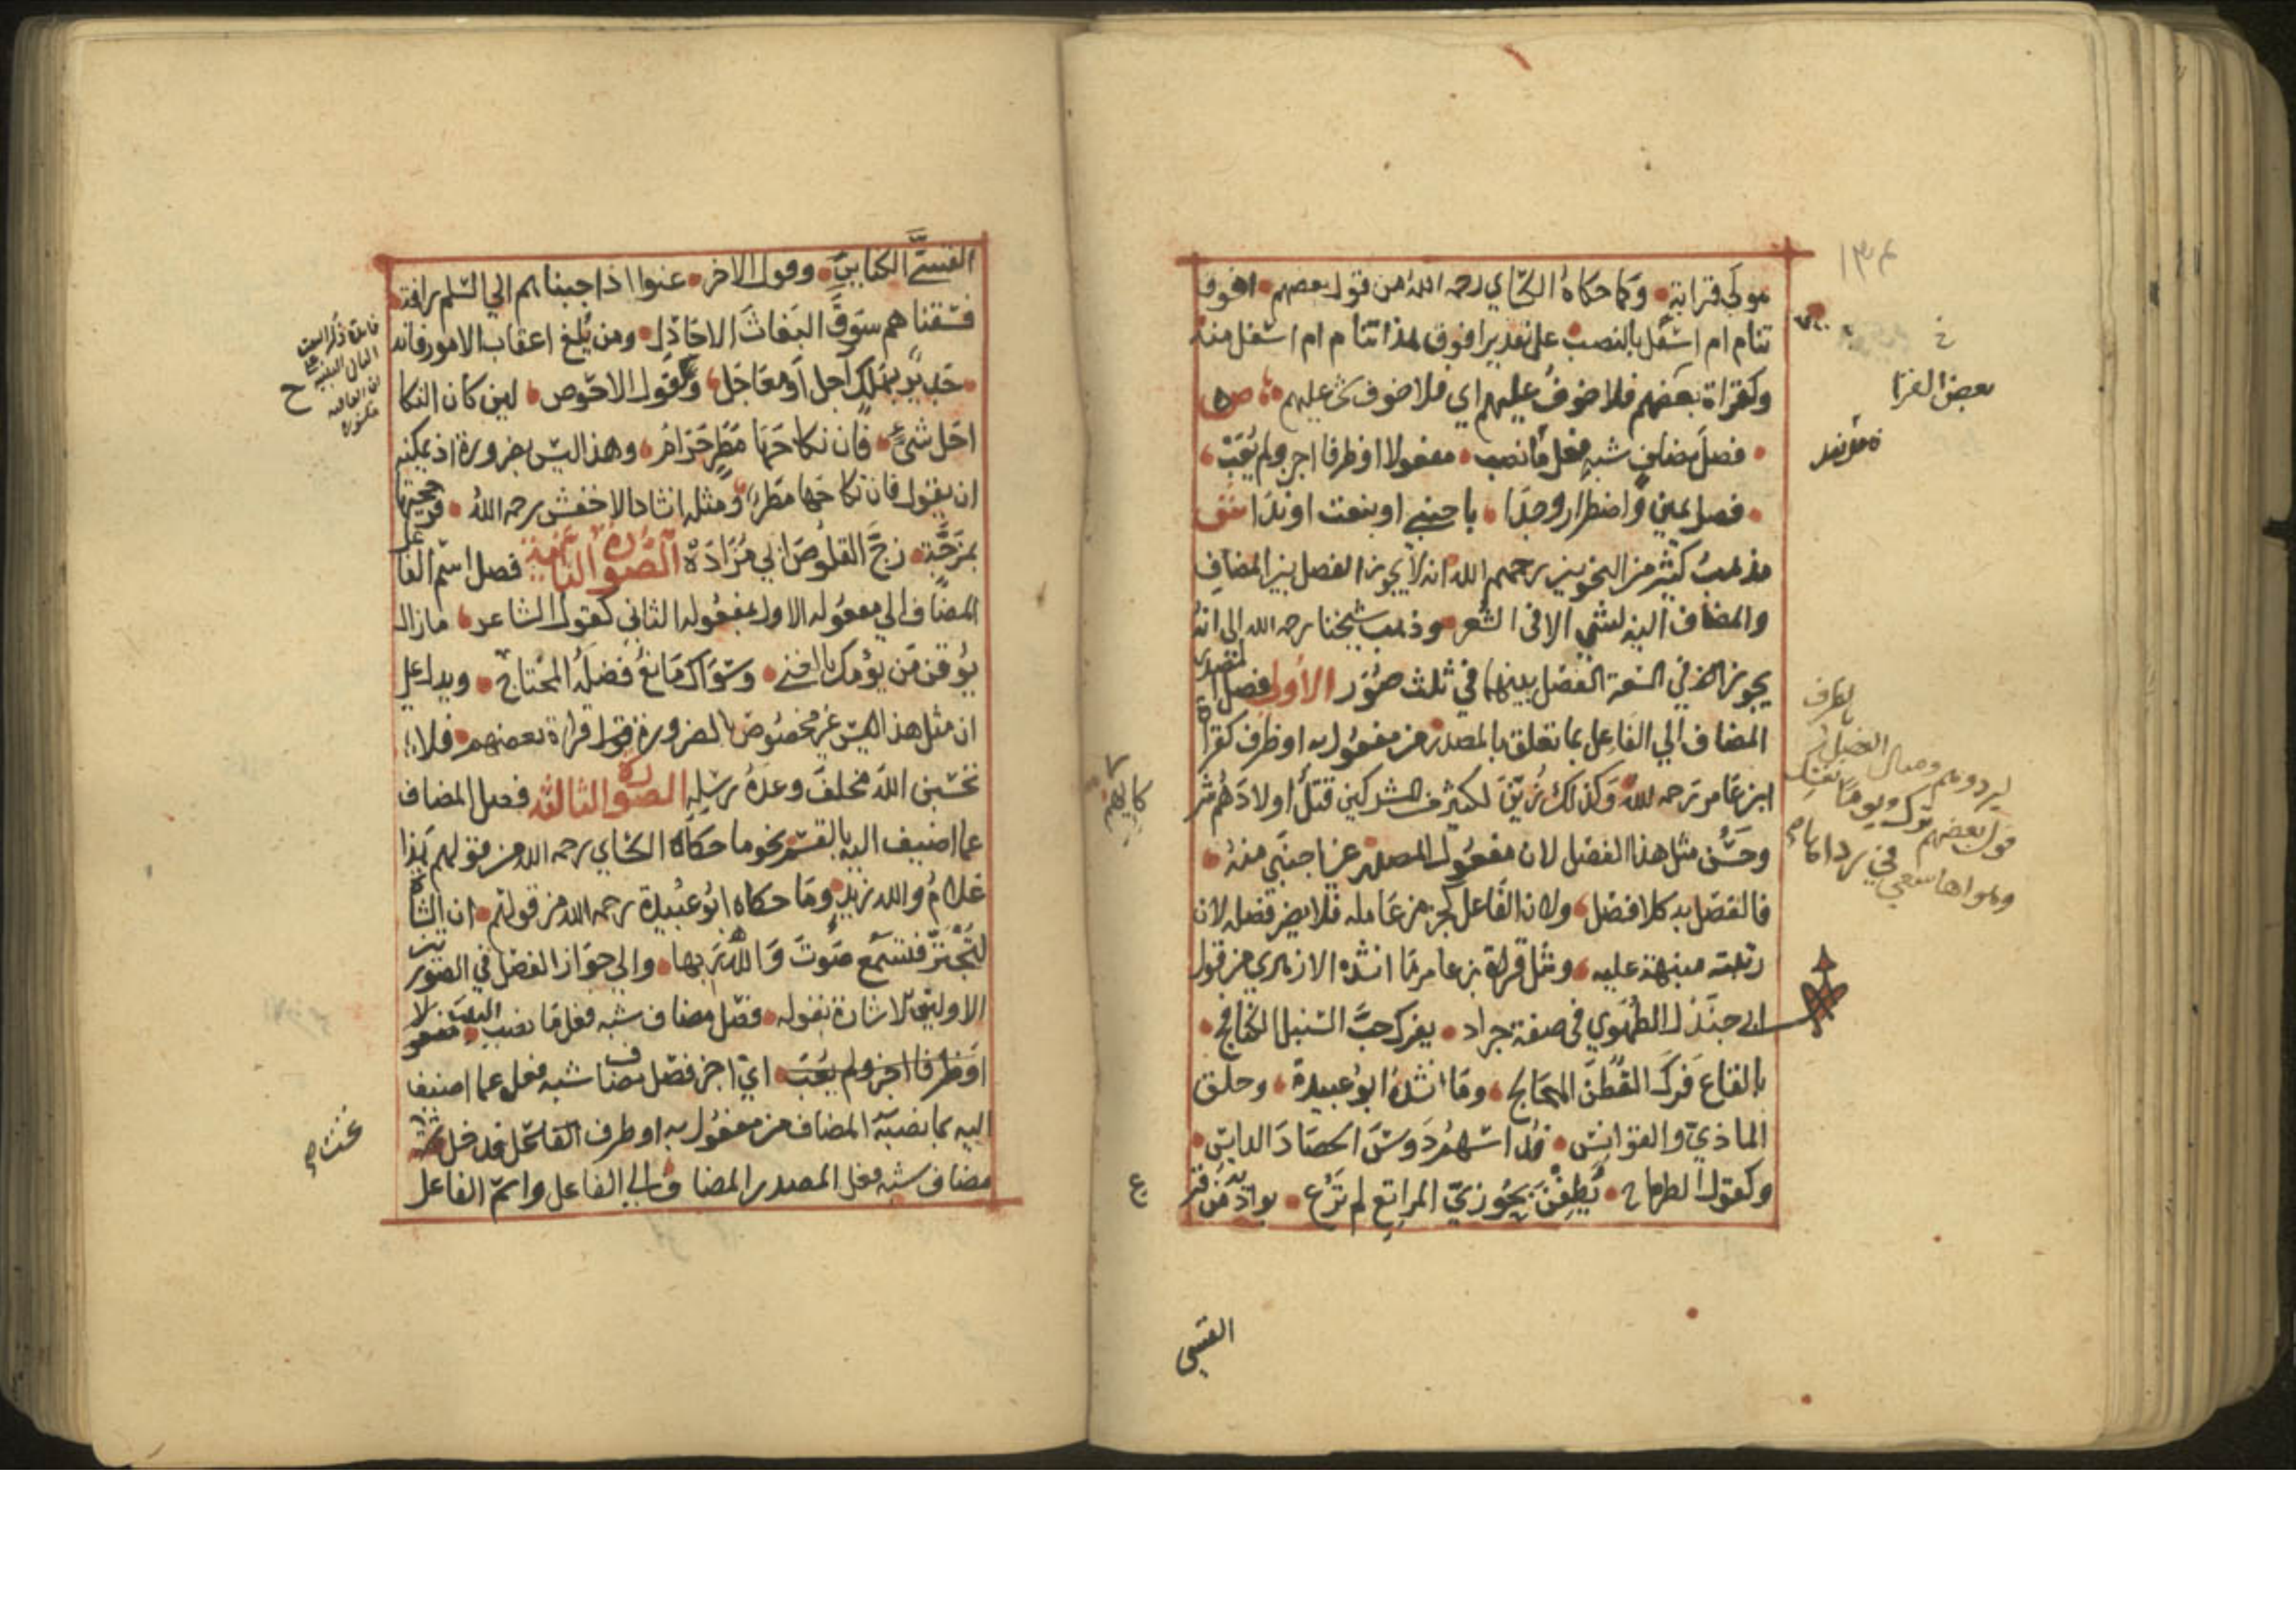 ١٣٤
مولى قرابة وكما حكاه الكساي رحمه الله من قول بعضهم افوق
تنام ام اسفل بالنصب على تقدير افوق هذا تنام ام اسفل منه
وكقراة بعضهم فلا خوفُ عليهم اي فلا خوف شي عليهم ص
فصل مضاف شبه فعل ما نصب مفعولا او ظرفا اجز ولم يُعَب
فصل يمين واضطرار وجدا باجنبي او بنعت او ندا ش
مذهب كثير من النحويين رحمهم الله انه لا يجوز الفصل بين المضاف
والمضاف اليه لشي الا في الشعر وذهب شيخنا رحمه الله الى انه
يجوز في السعة الفصل بينهما في ثلث صور الاولى فصل المصدر
المضاف الي الفاعل بما تعلق بالمصدر من مفعول به او ظرف كقراة
ابن عامر رحمه الله وكذلك زُيِّنَ لكثير من المشركين قتلُ اولادَهم شركايهم
وحسُن مثل هذا الفصل لان مفعول المصدر غير اجنبي منه
فالفصل به كلا فصل ولان الفاعل كجز من عامله فلا يضر فصله لان
رتبته منبهة عليه ومثل قراة بن عامر ما انشده الازهري من قول
ابي جندل الطُهَوي في صفة جراد يفرك حبَّ السنبل الكنافج
بالقاع فرك القطنَ المحالج وما انشده ابو عبيدة وحلق
الماذي والقوانس فداسهم دوسَ الحصادَ الدايس
وكقول الطرماح يُطِفْنَ بحوزيّ المراتع لم تُرَع بواديه من قرع
بعض القرا
القسي
القسيَّ الكناينِ وقول الاخر عتوا اذا جبناهم الي السلم رافة
فسقناهم سوقَ البغاثَ الاجادل ومن يُلغ اعقاب الامور فانه
جدير بهلك آجل او معاجل وكقول الاحوص لين كان النكا
احل شيء فان نكاحَها مطرٍ حرامُ وهذا ليس بضرورة اذ يمكنه
ان يقول فان نكاحها مطر ومثله انشاد الاخفش رحمه الله فزججتها
بمزجة زجَّ القلوصَ ابي مزادة الصورة الثانية فصل اسم الفاعل
المضاف الي مفعوله الاول بمفعوله الثاني كقول الشاعر ما زال
يُوقن من يؤمك بالغني وسواك مانعُ فضلَه المحتاج ويدل علي
ان مثل هذا ليس غير مخصوص بالضرورة قراة بعضهم فلا
تحسبن الله مخلفَ وعدَه رسلِه الصورة الثالثة فصل المضاف
عما اضيف اليه بالقسم نحو ما حكاه الكساي رحمه الله من قولهم هذا
غلامُ والله زيدٍ وما حكاه ابو عبيدة رحمه الله من قولهم ان الشاة
لتجترّ فتسمع صوتَ والله ربها والي جواز الفصل في الصورتين
الاوليين الاشارة بقوله فصل مضاف شبه فعل ما نصب البيت
او ظرفا اجز ولم يعب اي اجز فصل مضاف شبه فعل عما اضيف
اليه بما نصبه المضاف من مفعول به او ظرف فدخل تحت
مضاف شبه فعل المصدر المضاف الي الفاعل واسم الفاعل